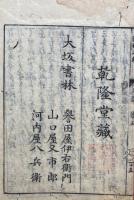 乾隆堂藏
大坂書林
譽田屋伊右衛門
山口屋又市郎
河内屋八兵衛